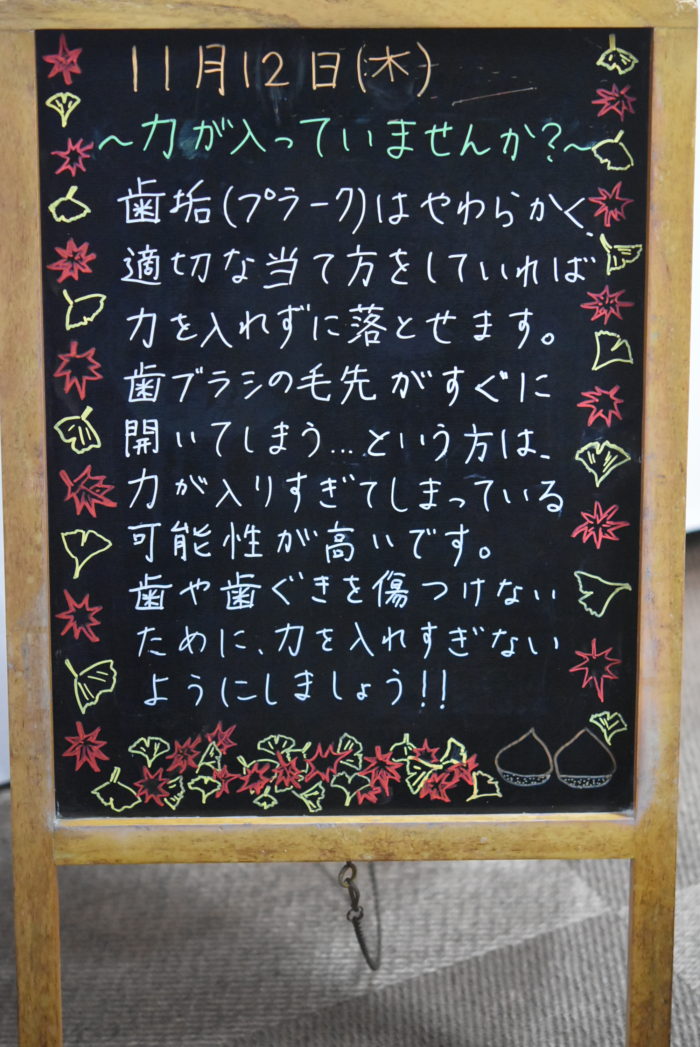 11月12日(木)
～力が入っていませんか?～
歯垢(プラーク)はやわらかく、
適切な当て方をしていれば
力を入れずに落とせます。
歯ブラシの毛先がすぐに
開いてしまう…という方は、
力が入りすぎてしまっている
可能性が高いです。
歯や歯ぐきを傷つけない
ために、力を入れすぎない
ようにしましょう!!